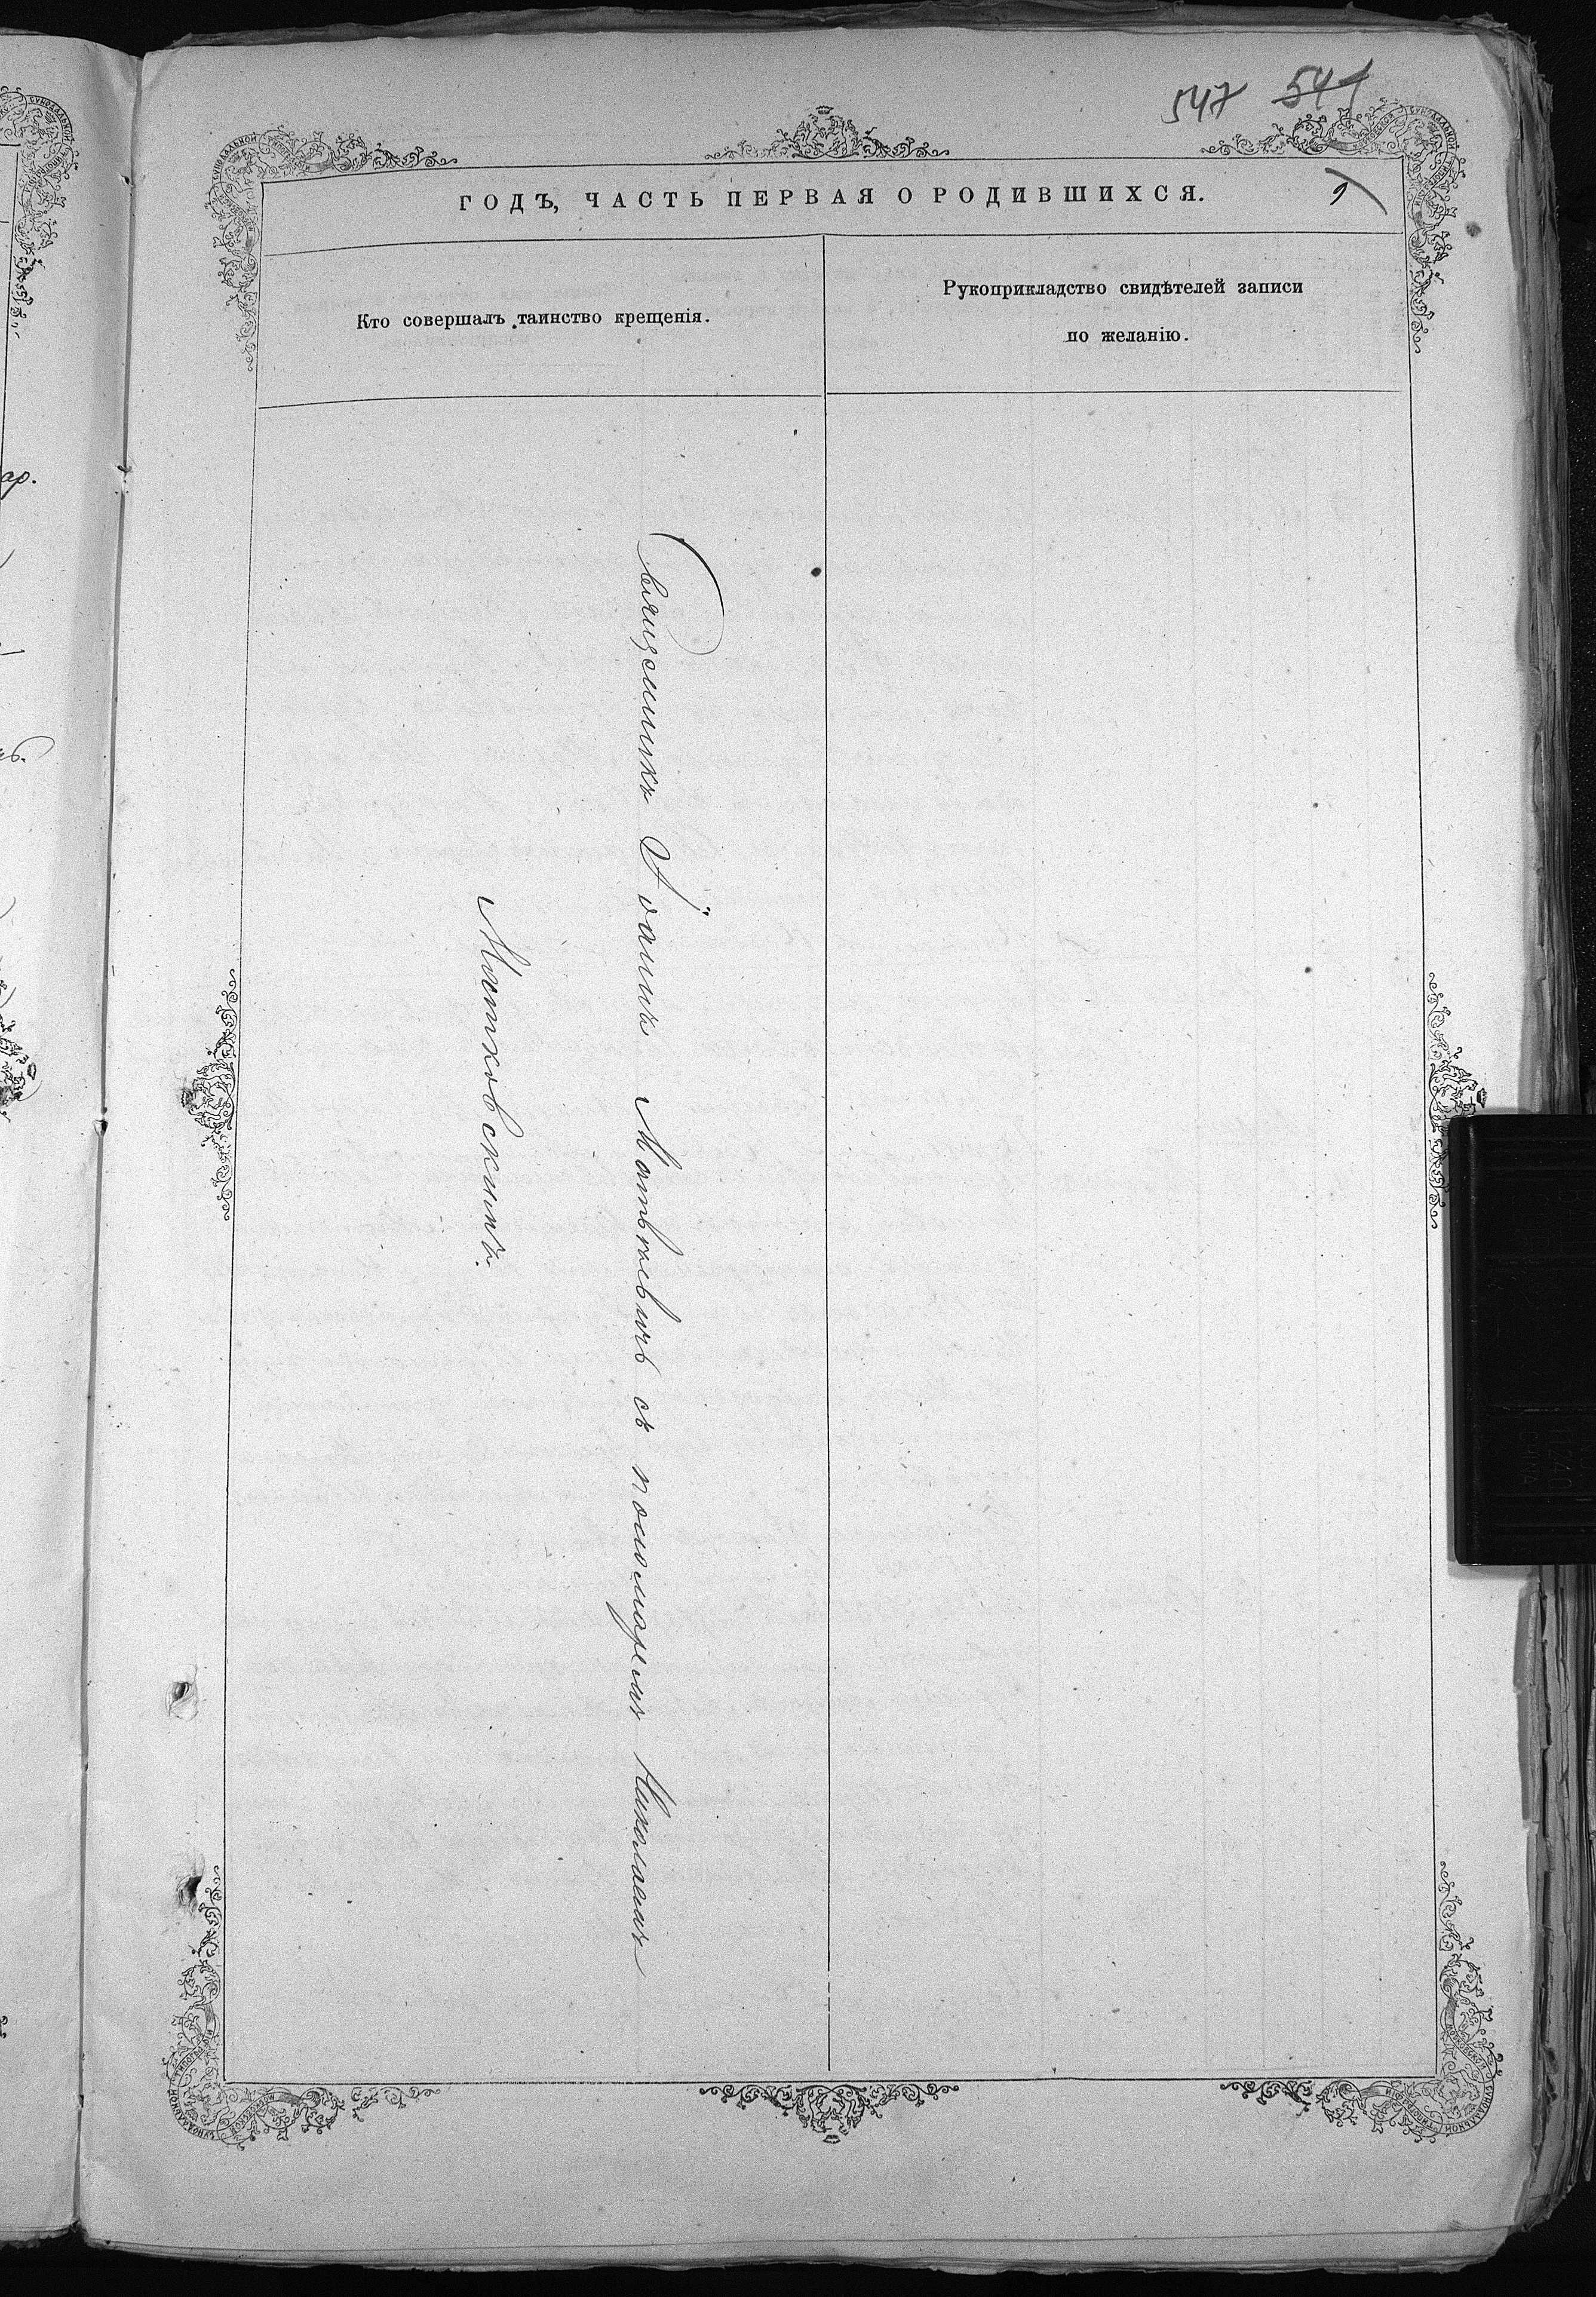 547 541
ГОДЪ, ЧАСТЬ ПЕРВАЯ О РОДИВШИХСЯ.
9
Кто совершалъ таинство крещенія.
Рукоприкладство свидѣтелей записи
по желанію.
Священникъ Іоаннъ Матвѣевъ съ пономаремъ Николаемъ